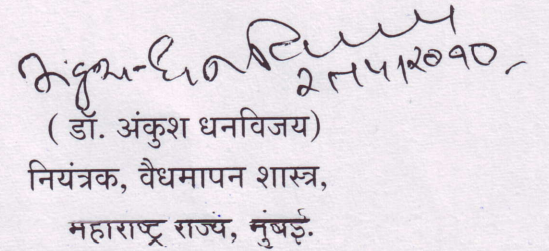 अंकुश धनविजय
( डॉ. अंकुश धनविजय)
नियंत्रक, वैधमापन शास्त्र,
महाराष्ट्र राज्य, मुंबई.